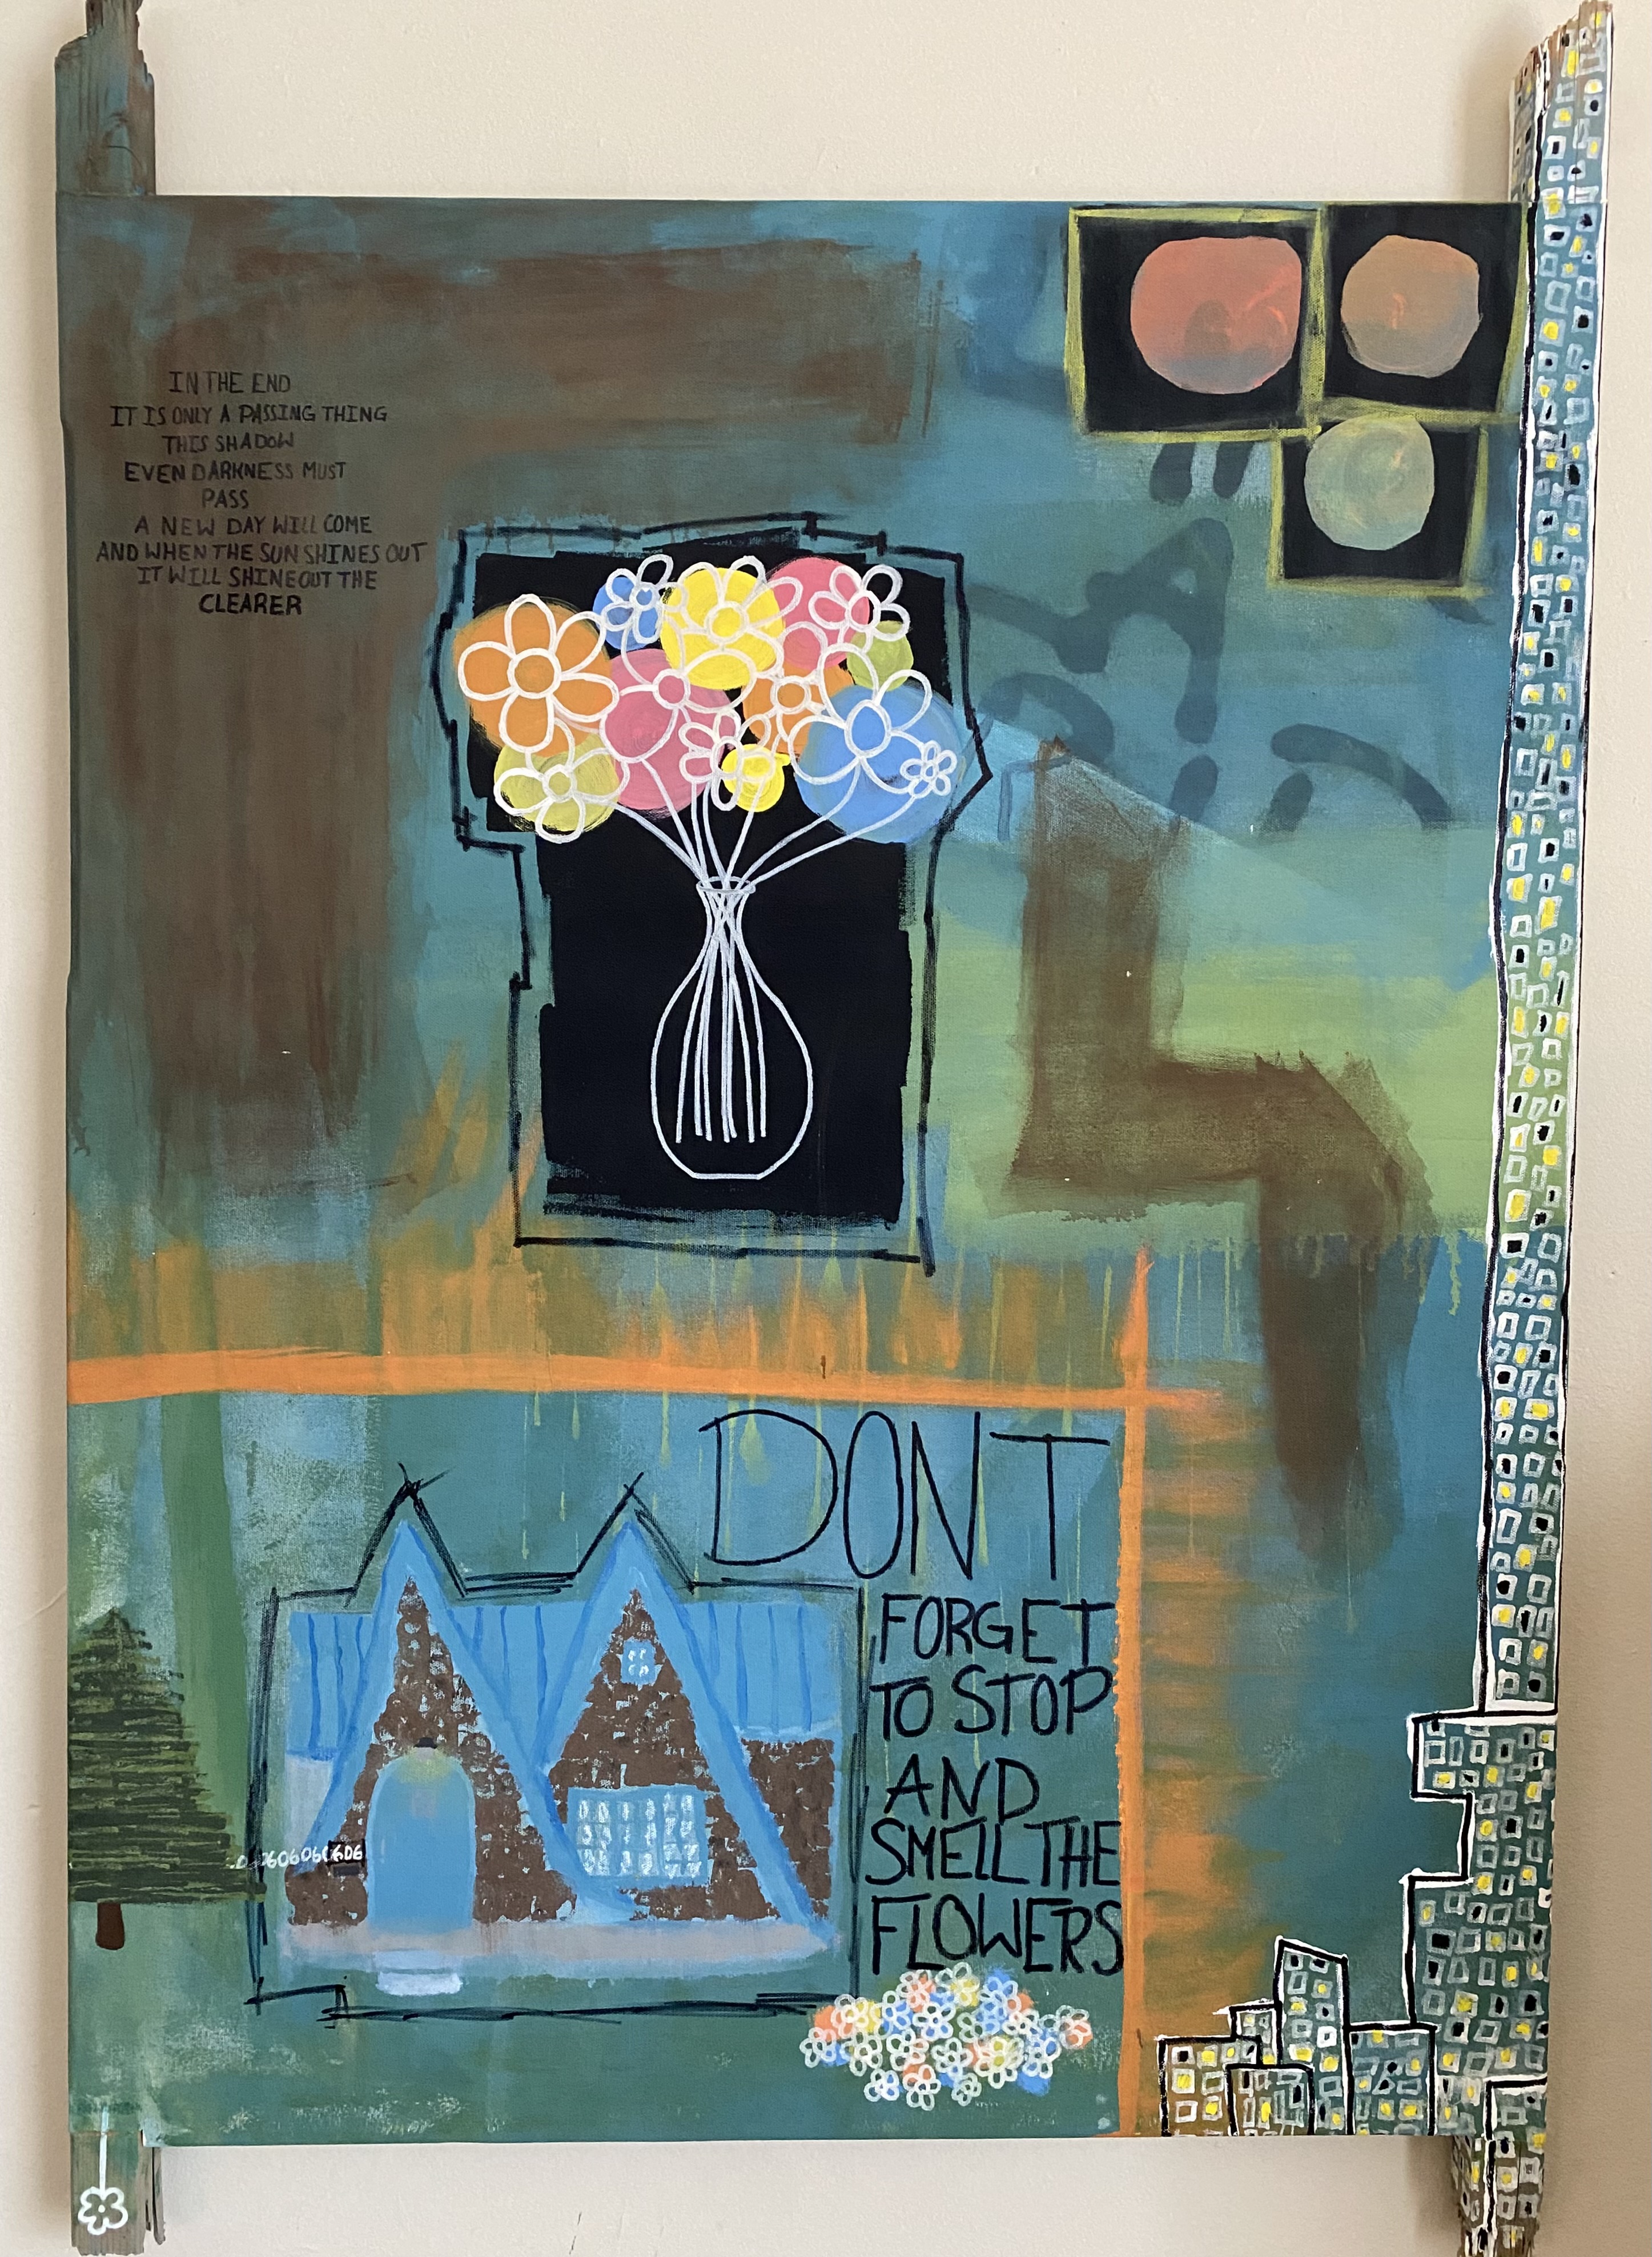 IN THE END
IT IS ONLY A PASSING THING
THIS SHADOW
EVEN DARKNESS MUST
PASS
A NEW DAY WILL COME
AND WHEN THE SUN SHINES OUT
IT WILL SHINE OUT THE
CLEARER
DONT
FORGET
TO STOP
AND
SMELL THE
FLOWERS